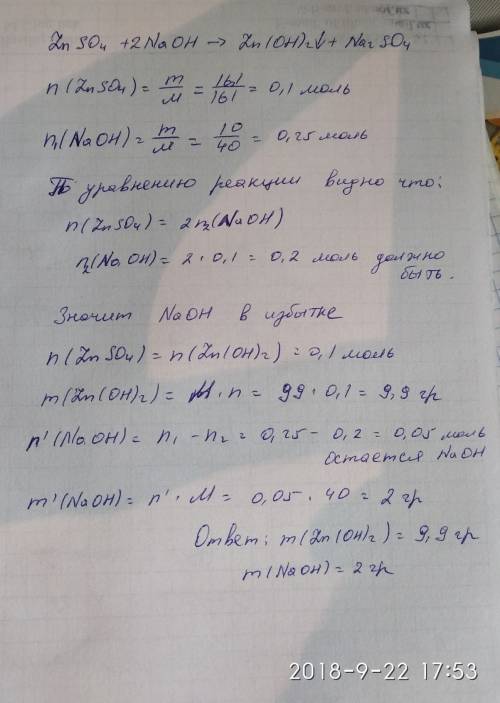 ZnSO₄ + 2NaOH → Zn(OH)₂↓ + Na₂SO₄
n(ZnSO₄) = m/M = 161/161 = 0,1 моль
n₁(NaOH) = m/M = 10/40 = 0,25 моль
По уравнению реакции видно что:
n(ZnSO₄) = 2n₂(NaOH)
n₂(NaOH) = 2 · 0,1 = 0,2 моль должно
быть.
Значит NaOH в избытке
n(ZnSO₄) = n(Zn(OH)₂) = 0,1 моль
m(Zn(OH)₂) = M · n = 99 · 0,1 = 9,9 гр
n'(NaOH) = n₁ - n₂ = 0,25 - 0,2 = 0,05 моль
остается NaOH
m'(NaOH) = n' · M = 0,05 · 40 = 2 гр
Ответ: m(Zn(OH)₂) = 9,9 гр
m(NaOH) = 2 гр
2018-9-22 17:53